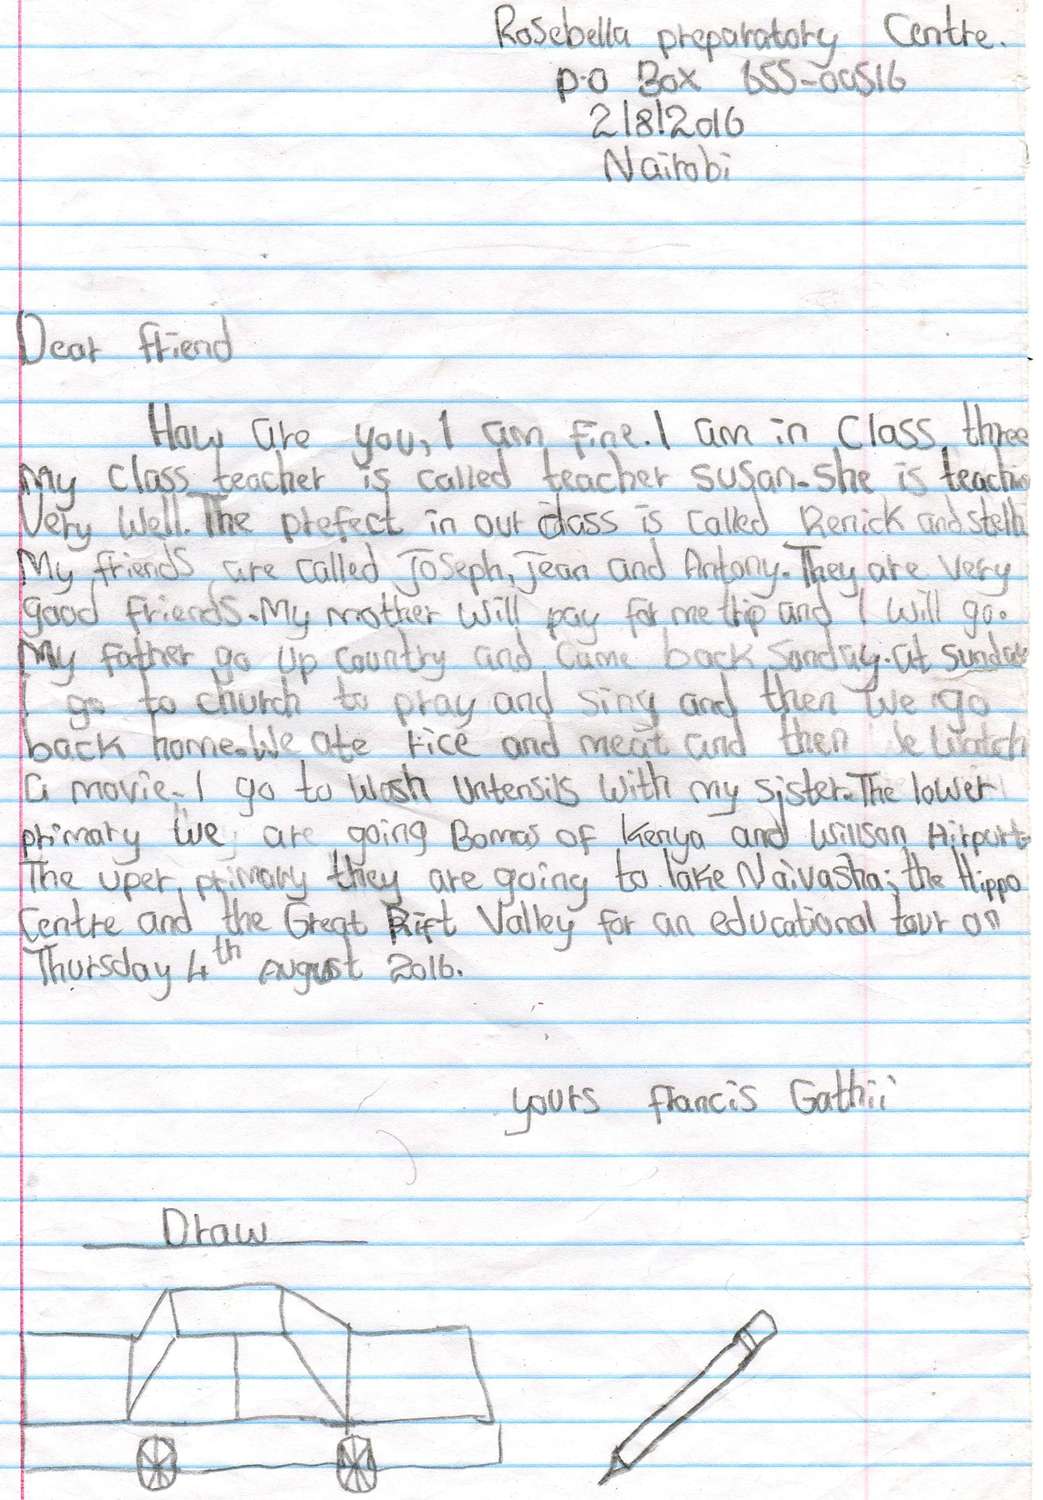 Rosebella preparatory Centre.
p.o Box 655-00516
2/8/2016
Nairobi
Dear friend
How are you, I am fine. I am in Class three
My class teacher is called teacher susan. she is teachin
Very Well. The prefect in our class is called Renick and stella
My friends are called Joseph, Jean and Antony. They are very
good friends. My mother will pay for me trip and I will go.
My father go up country and came back Sonday. at sunday
I go to church to pray and sing and then we go
back home. We ate rice and meat and then we Watch
a movie. I go to wash untensils with my sister. The lower
primary we are going Bomas of Kenya and Willson Airport.
The uper, primary they are going to lake Naivasha; the Hippo
Centre and the Great Rift Valley for an educational tour on
Thursday 4th August 2016.
yours francis Gathii
Draw